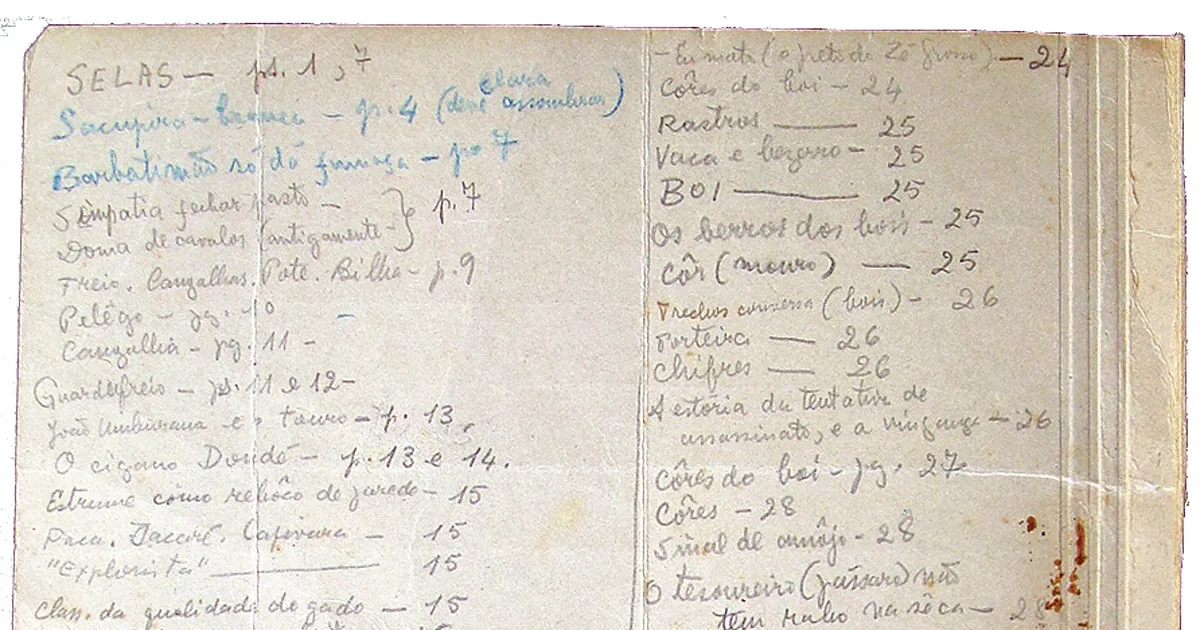 SELAS — ps. 1, 7
Sucupira-branca - p. 4 (deve clara assombrar)
Barbatimão só dá fumaça - pg 7
Simpatia fechar pasto -
Doma de cavalos (antigamente - } p. 7
Freio. Cangalhas. Pote. Bilha - p. 9
Pelêgo - pg. 10
Cangalha - pg. 11 -
Guardafreio - ps. 11 e 12 -
João Umburana e o touro - p. 13,
O cigano Dondé - p. 13 e 14.
Estrume como rebôco de parede - 15
Paca. Jacaré. Capivara - 15
"Explorista" — 15
Class. da qualidade do gado - 15
- Eu mata (o preto do Zé Grosso) - 24
Côres do boi - 24
Rastros — 25
Vaca e bezerro - 25
BOI — 25
Os berros dos bois - 25
Côr (mouro) — 25
Trechos conversa (bois) - 26
Porteira — 26
Chifres — 26
A estória da tentativa de
assassinato, e a vingança - 26
Côres do boi - pg. 27
Côres - 28
Sinal de amôjo - 28
O tesoureiro (pássaro) não
tem rabo na sêca - 28